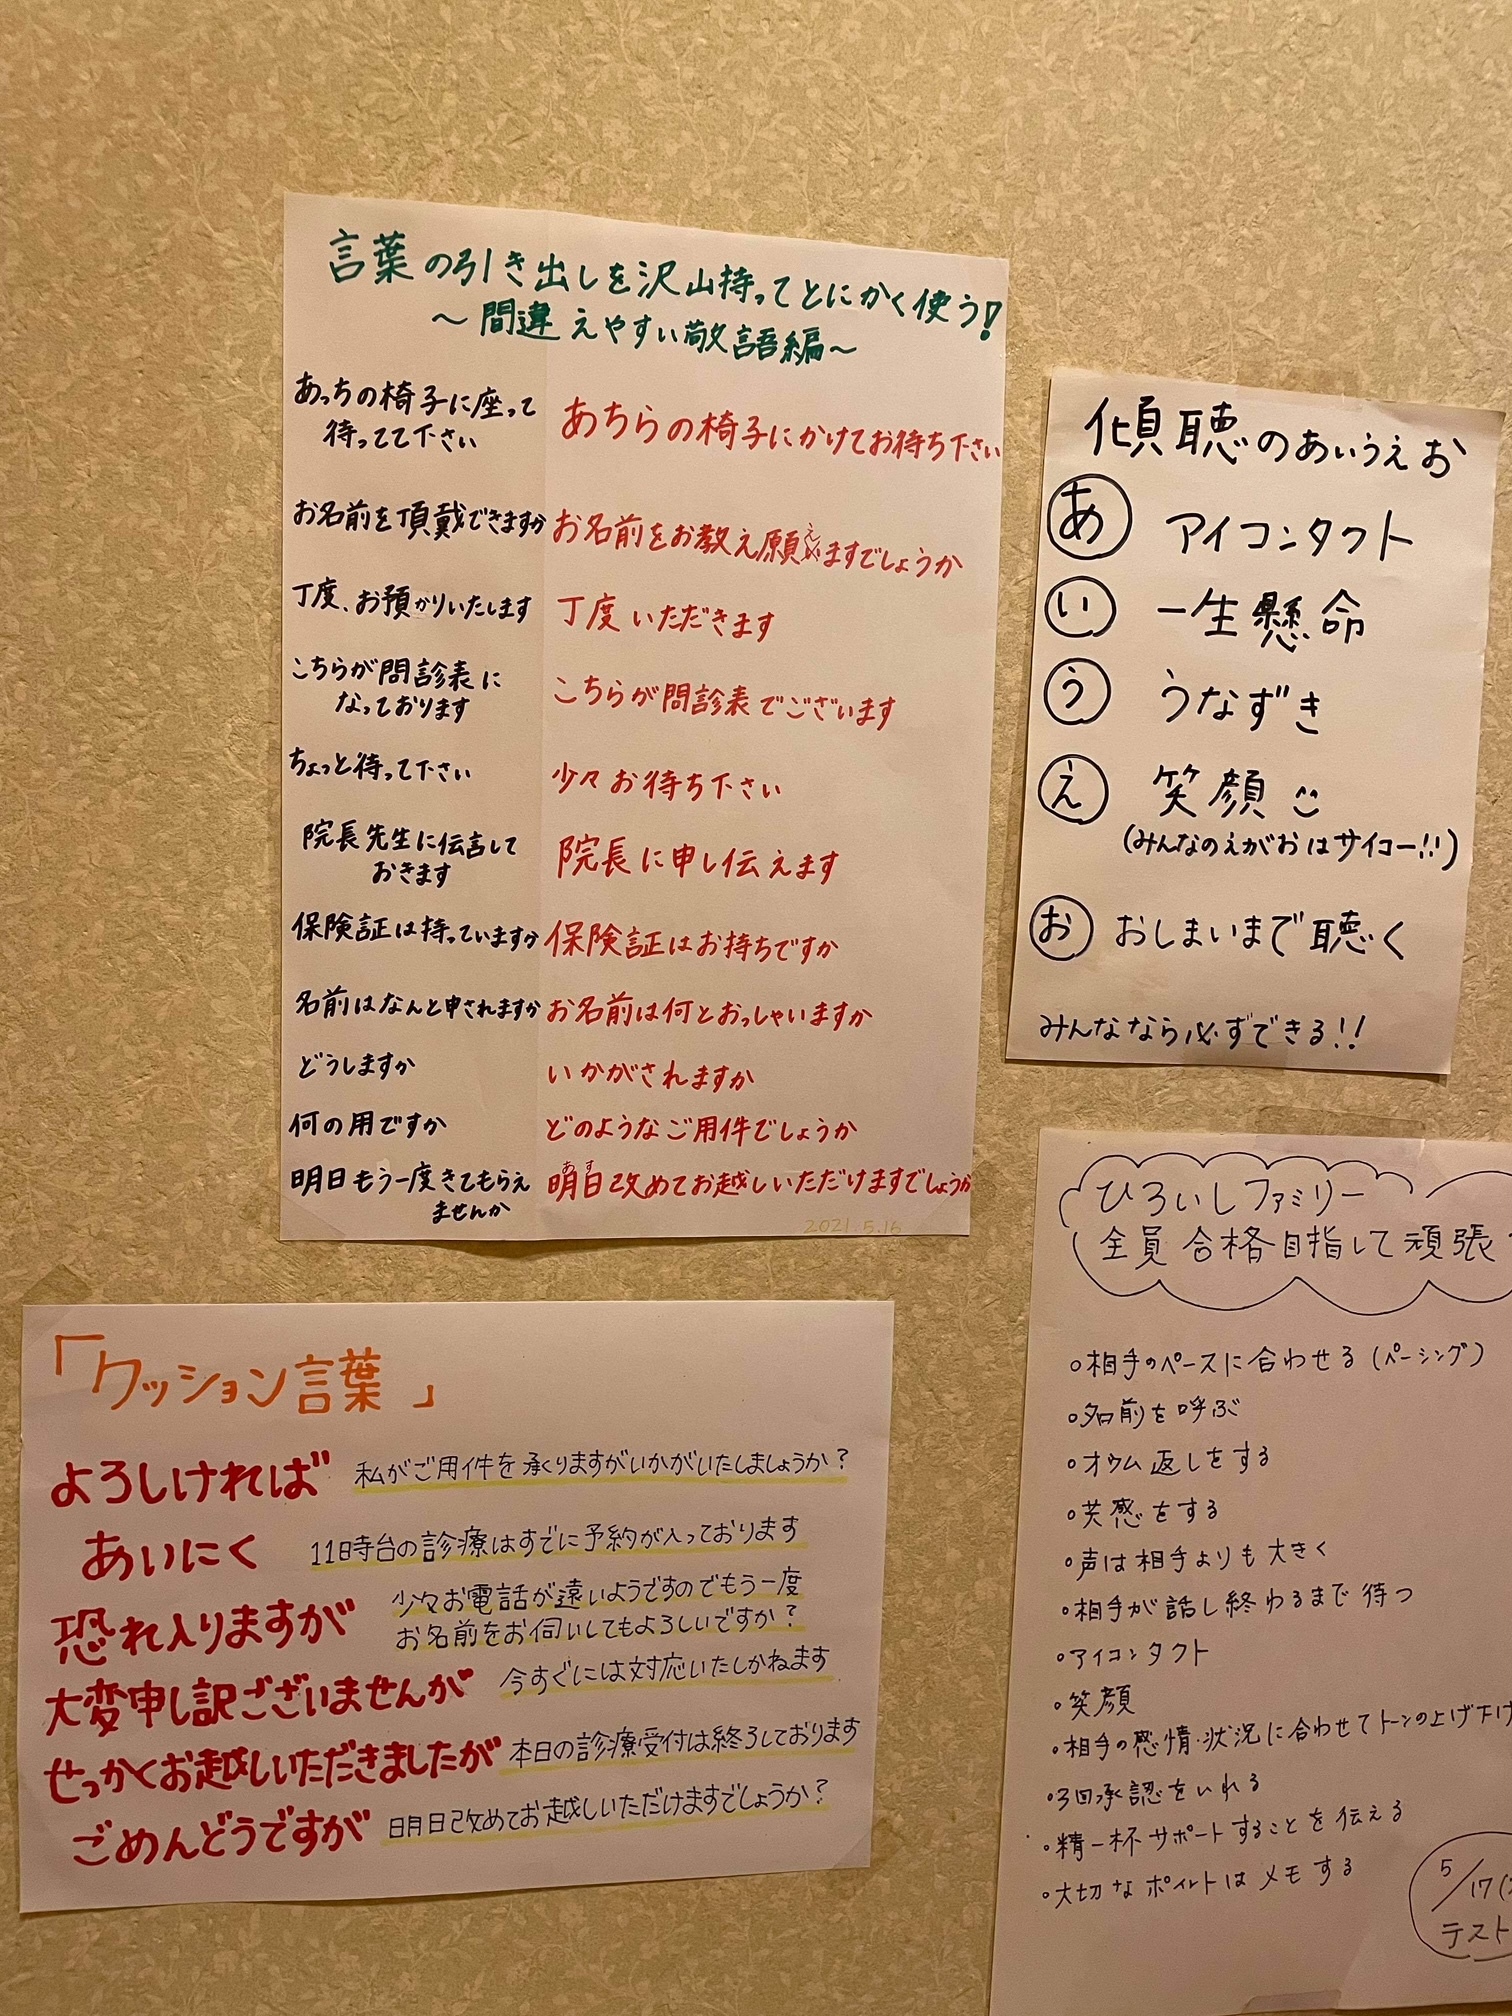 言葉の引き出しを沢山持ってとにかく使う!
〜間違えやすい敬語編〜
あっちの椅子に座って
待ってて下さい
あちらの椅子にかけてお待ち下さい
お名前を頂戴できますか
お名前をお教え願えますでしょうか
丁度、お預かりいたします
丁度いただきます
こちらが問診表に
なっております
こちらが問診表でございます
ちょっと待って下さい
少々お待ち下さい
院長先生に伝言して
おきます
院長に申し伝えます
保険証は持っていますか
保険証はお持ちですか
名前はなんと申されますか
お名前は何とおっしゃいますか
どうしますか
いかがされますか
何の用ですか
どのようなご用件でしょうか
明日もう一度きてもらえ
ませんか
あす
明日改めてお越しいただけますでしょうか
2021.5.16
傾聴のあいうえお
あ アイコンタクト
い 一生懸命
う うなずき
え 笑顔
(みんなのえがおはサイコー!!)
お おしまいまで聴く
みんななら必ずできる!!
「クッション言葉」
よろしければ 私がご用件を承りますがいかがいたしましょうか?
あいにく 11時台の診療はすでに予約が入っております
恐れ入りますが 少々お電話が遠いようですのでもう一度
お名前をお伺いしてもよろしいですか?
大変申し訳ございませんが 今すぐには対応いたしかねます
せっかくお越しいただきましたが 本日の診療受付は終了しております
ごめんどうですが 明日改めてお越しいただけますでしょうか?
ひろいしファミリー
全員合格目指して頑張
○相手のペースに合わせる(ペーシング)
○名前を呼ぶ
○オウム返しをする
○共感をする
○声は相手よりも大きく
○相手が話し終わるまで待つ
○アイコンタクト
○笑顔
○相手の感情・状況に合わせてトーンの上げ下げ
○3回承認をいれる
○精一杯サポートすることを伝える
○大切なポイントはメモする
5/17(
テスト